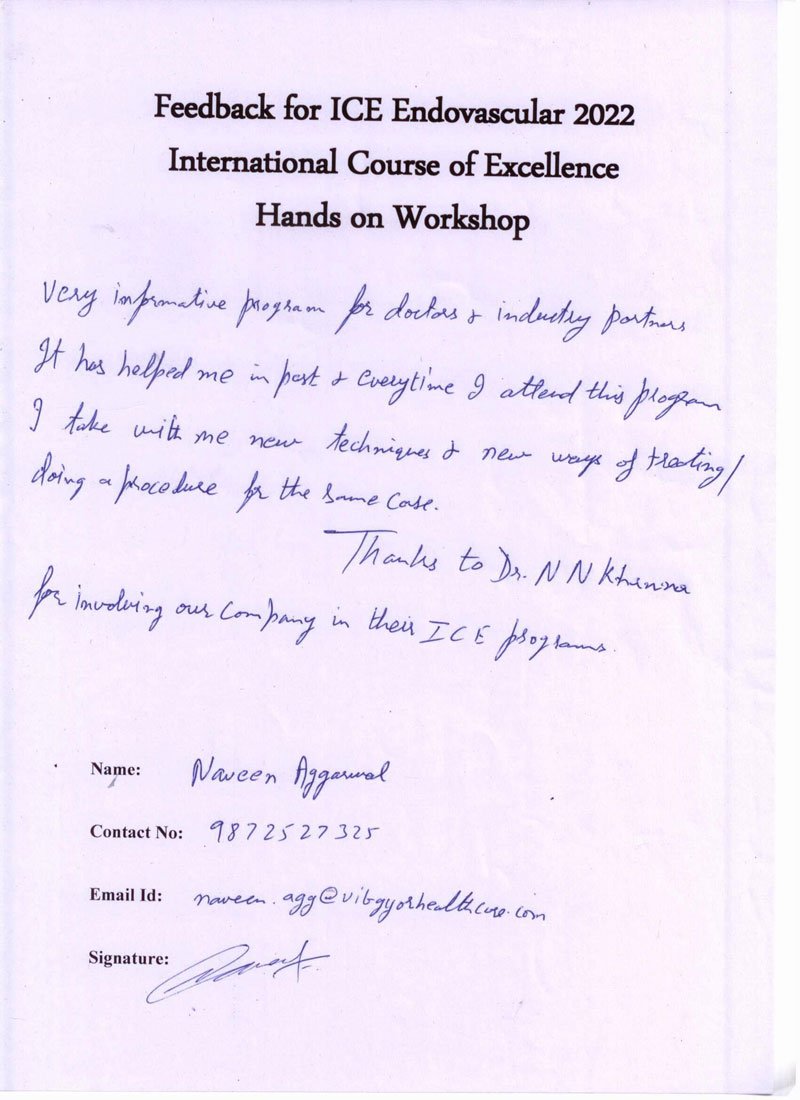 Feedback for ICE Endovascular 2022
International Course of Excellence
Hands on Workshop
Very informative program for doctors & industry partners
It has helped me in past & everytime I attend this program
I take with me new techniques & new ways of treating/
doing a procedure for the same case.
Thanks to Dr. N N Khanna
for involving our company in their ICE programs.
Name: Naveen Aggarwal
Contact No: 9872527325
Email Id: naveen.agg@vibgyorhealthcare.com
Signature: